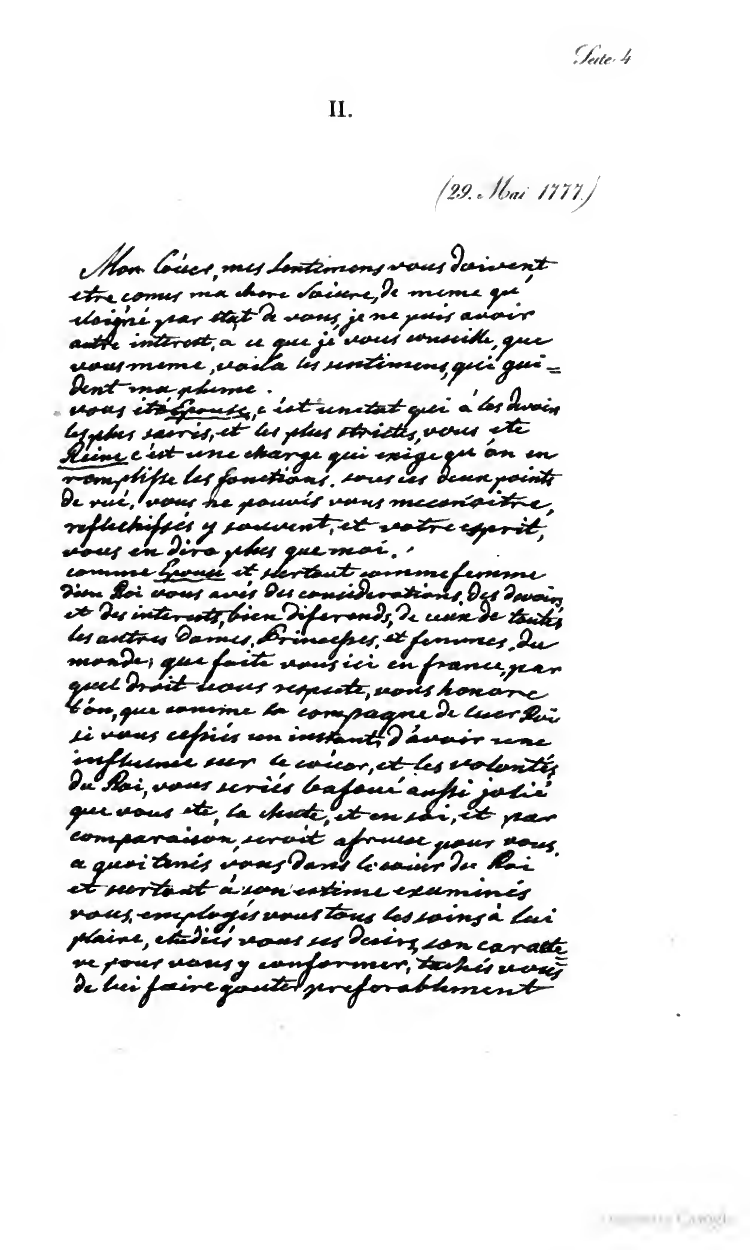 Seite 4
II.
(29. Mai 1777.)
Mon Coeur, mes sentimens vous doivent
etre connus ma chere Soeure, de meme qu'
eloigné par etat de vous, je ne puis avoir
autre interest, a ce que je vous conseille, que
vous meme, voila les sentimens, qui gui=
dent ma plume.
vous ete Epouse, c'est un etat qui à les devoirs
les plus sacrés, et les plus strictes, vous ete
Reine c'est une charge qui exige qu'on en
remplisse les fonctions. sous ces deux points
de vué, vous ne pouvés vous meconoitre,
reflechissés y souvent, et votre esprit,
vous en dira plus que moi.
comme Epouse et surtout comme femme
d'un Roi vous avés des considerations, des devoirs,
et des interests, bien diferends, de ceux de toutes
les autres Dames, Princesses, et femmes, du
monde; que faite vous ici en france, par
quel droit vous respecte, vous honore
t'on, que comme la compagne de leur Roi
si vous cessiés un instant, d'avoir une
influence sur le coeur, et les volontés
du Roi, vous seriés bafoué aussi jolié
que vous ete, la chute, et en soi, et par
comparaison, seroit afreuse pour vous,
a quoi tenés vous dans le coeur du Roi
et surtout à son estime examinés
vous, employés vous tous les soins à lui
plaire, etudiés vous ses desirs, son caracte
re pour vous y conformer, tachés vous
de lui faire gouter preferablement